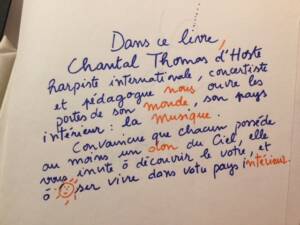 Dans ce livre,
Chantal Thomas d'Hoste
harpiste internationale, concertiste
et pédagogue nous ouvre les
portes de son monde, son pays
intérieur : la musique.
Convaincue que chacun possède
au moins un don du Ciel, elle
vous invite à découvrir le vôtre, et
à oser vivre dans votre pays intérieur.